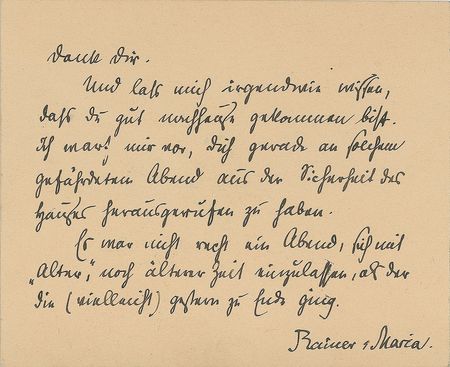 Danke Dir.
Und lass mich irgendwie wissen,
dass du gut nachhause gekommen bist.
Ich warf mir vor, Dich gerade an solchem
gefährdetem Abend aus der Sicherheit des
Hauses herausgerufen zu haben.
Es war nicht recht ein Abend, sich mit
„Alter“, noch älterer Zeit einzulassen, als der
die (vielleicht) gestern zu Ende ging.
Rainer Maria.